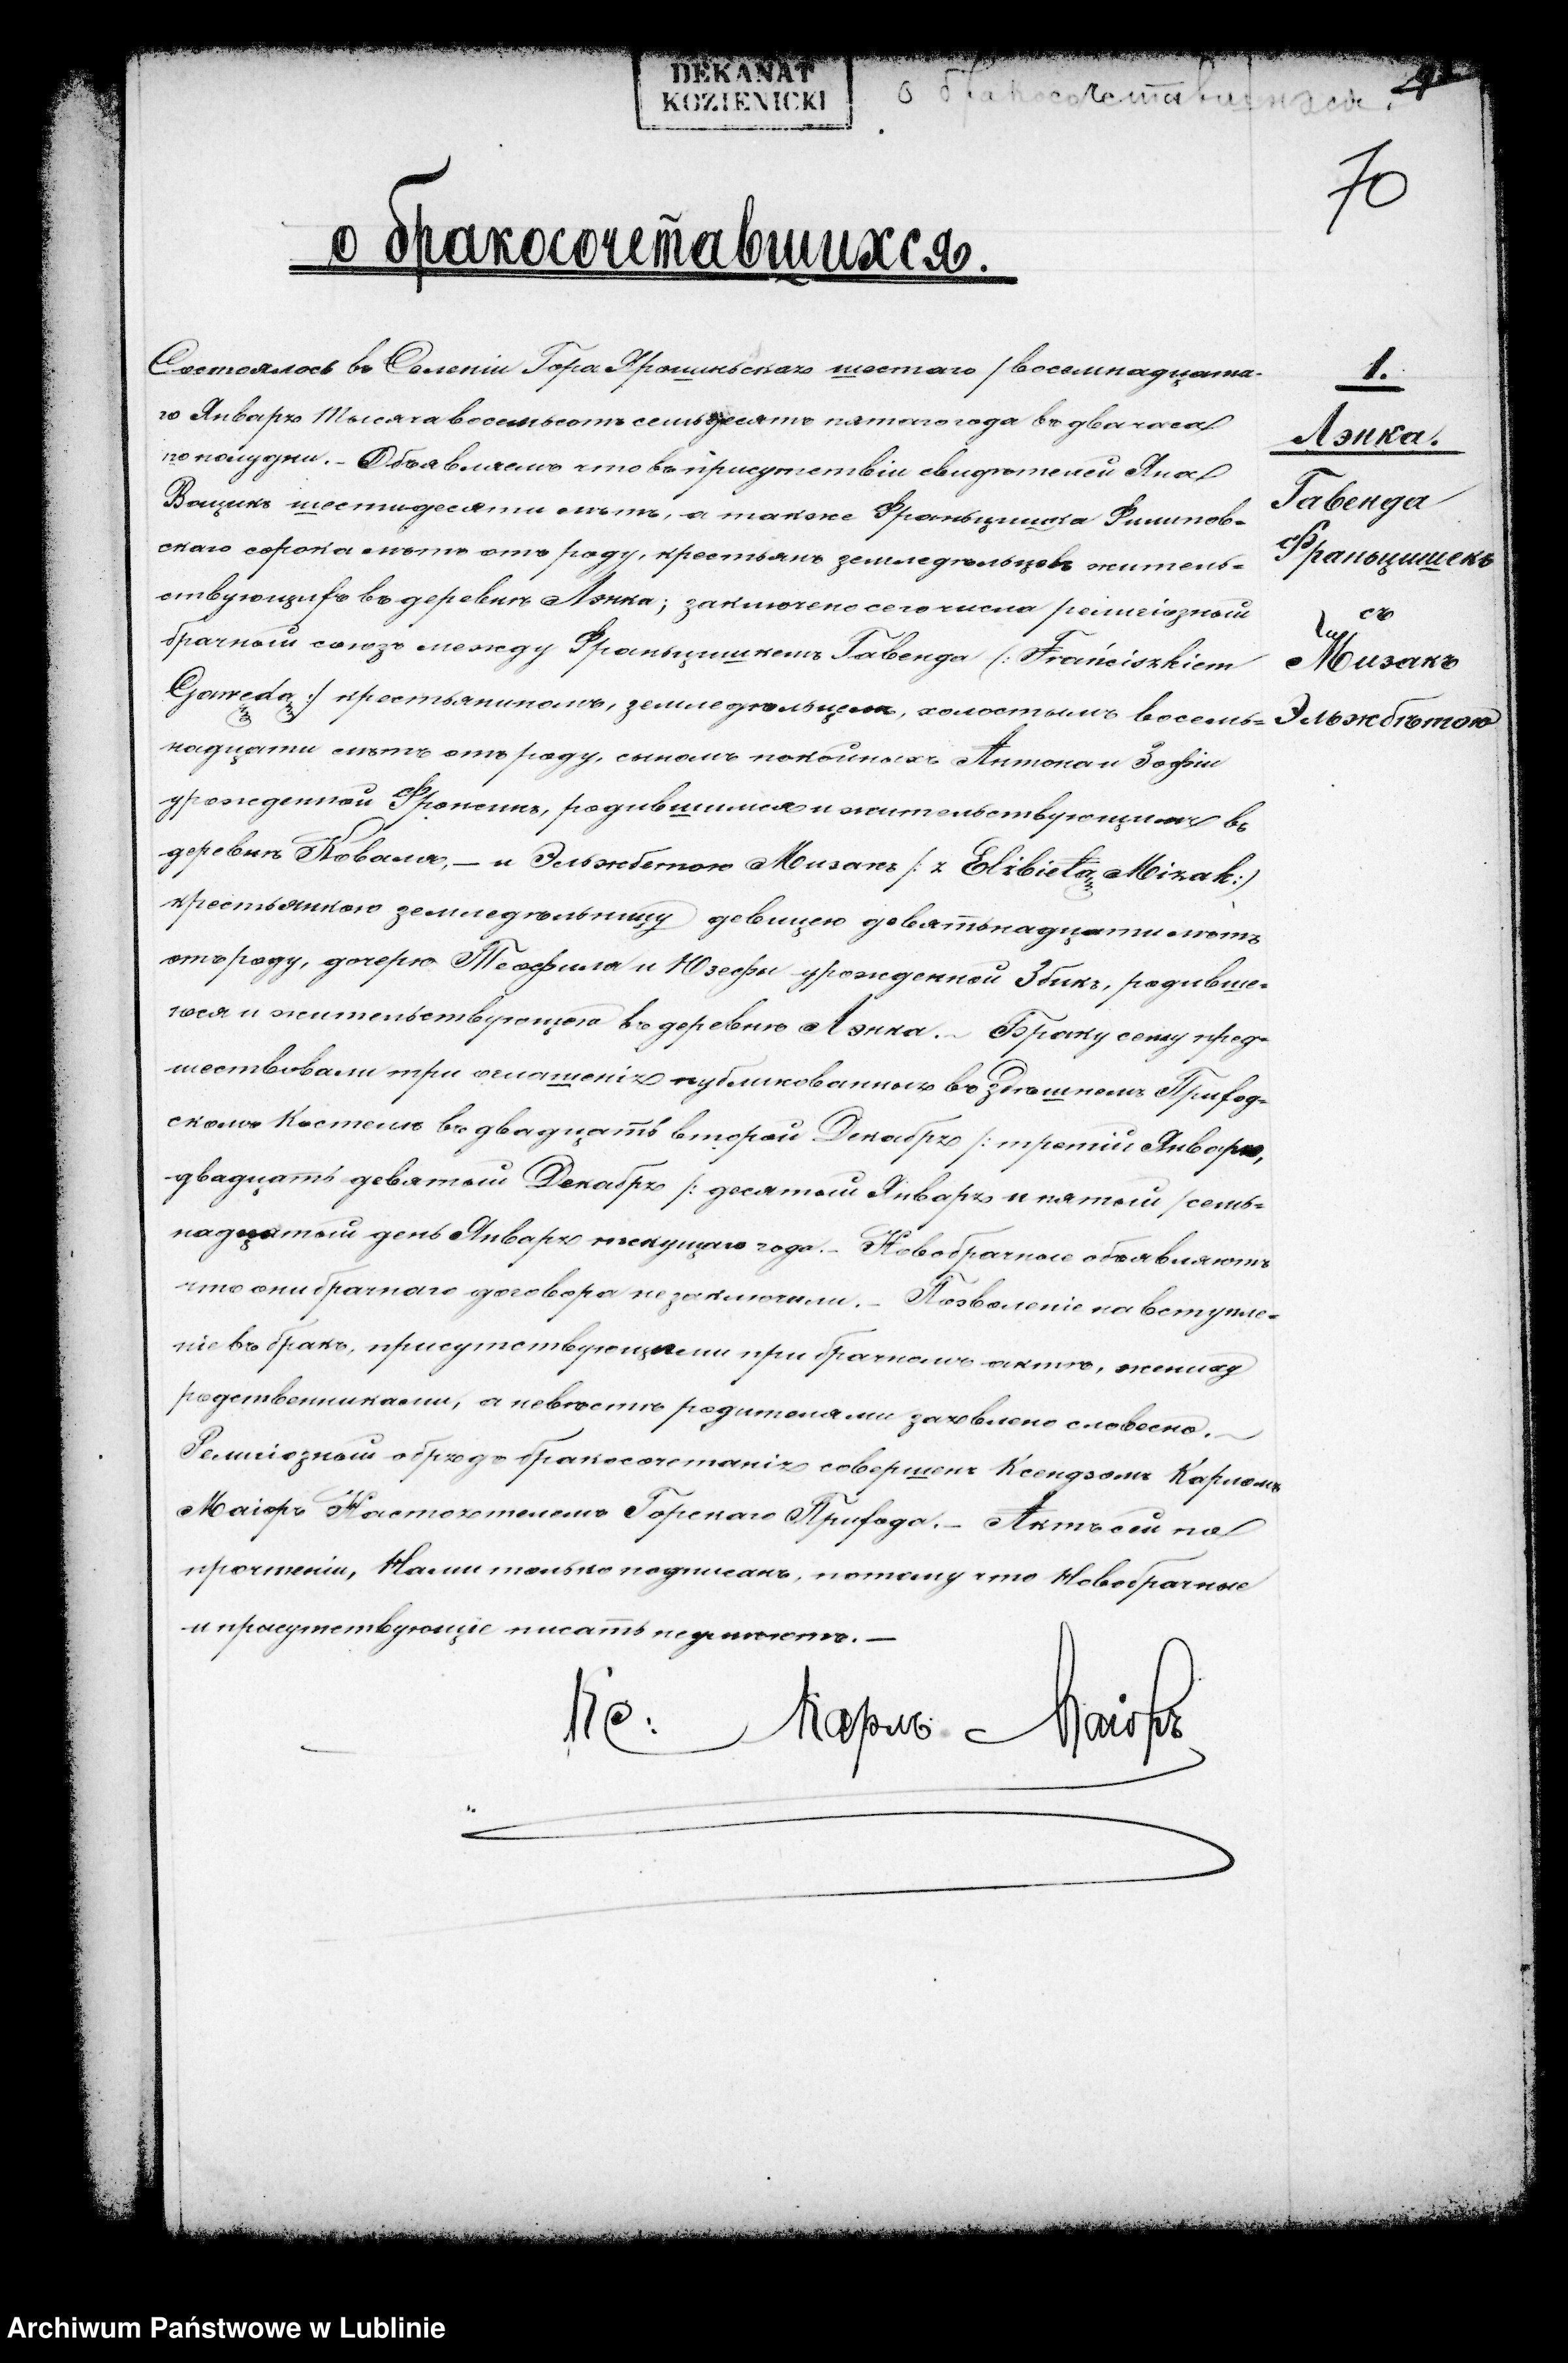 DEKANAT
KOZIENICKI
о бракосочетавшихся.
70
о бракосочетавшихся.
1.
Лэнка.
Гавенда
Франьцишекъ
съ
Мизакъ
Эльжбѣтою
Состоялось въ Селеніи Гора шестаго / восемнадцата-
го Января тысяча восемьсотъ семьдесятъ пятаго года въ два часа
по полудни. – Объявляемъ что въ присутствіи свидѣтелей Яна
шестидесяти лѣтъ, а также Франьцишка Филипов=
скаго сорока лѣтъ отъ роду, крестьянъ земледѣльцевъ житель=
ствующихъ въ деревнѣ Лэнка; заключено сего числа религіозный
брачный союзъ между Франьцишкемъ Гавенда (: Franćiszkiem
Gawęda :) крестьяниномъ, земледѣльцемъ, холостымъ восемь=
надцати лѣтъ отъ роду, сыномъ покойныхъ Антона и Зофіи
урожденной родившимся и жительствующимъ въ
деревнѣ Коваля, – и Эльжбетою Мизакъ (: z Elżbietą Mizak :)
крестьянкою земледѣльницу девицею девятьнадцати лѣтъ
отъ роду, дочерю Теофиля и Юзефы урожденной Збикъ, родивше=
юся и жительствующею въ деревнѣ Лэнка. – Браку сему пред=
шествовали три оглашенія публикованныхъ въ здѣшнемъ Приход=
скомъ Костелѣ въ двадцать второй Декабря /: третій Января,
двадцать девятый Декабря /: десятый Января и пятый / семь=
надцатый день Января текущаго года. – Новобрачное объявляютъ
что они брачнаго договора не заключили. – Позволеніе на вступле=
ніе въ бракъ, присутствующими при брачномъ актѣ, жениху
родственниками, а невѣстѣ родителями заявлено словесно. –
Религіозный обрядъ бракосочетанія совершенъ Ксендзомъ Карломъ
Маіоръ Настоятелемъ Горскаго Прихода. – Актъ сей по
прочтеніи, Нами только подписанъ, потому что Новобрачные
и присутствующіе писать не умѣютъ. –
Кс. Карлъ Маіоръ
Archiwum Państwowe w Lublinie